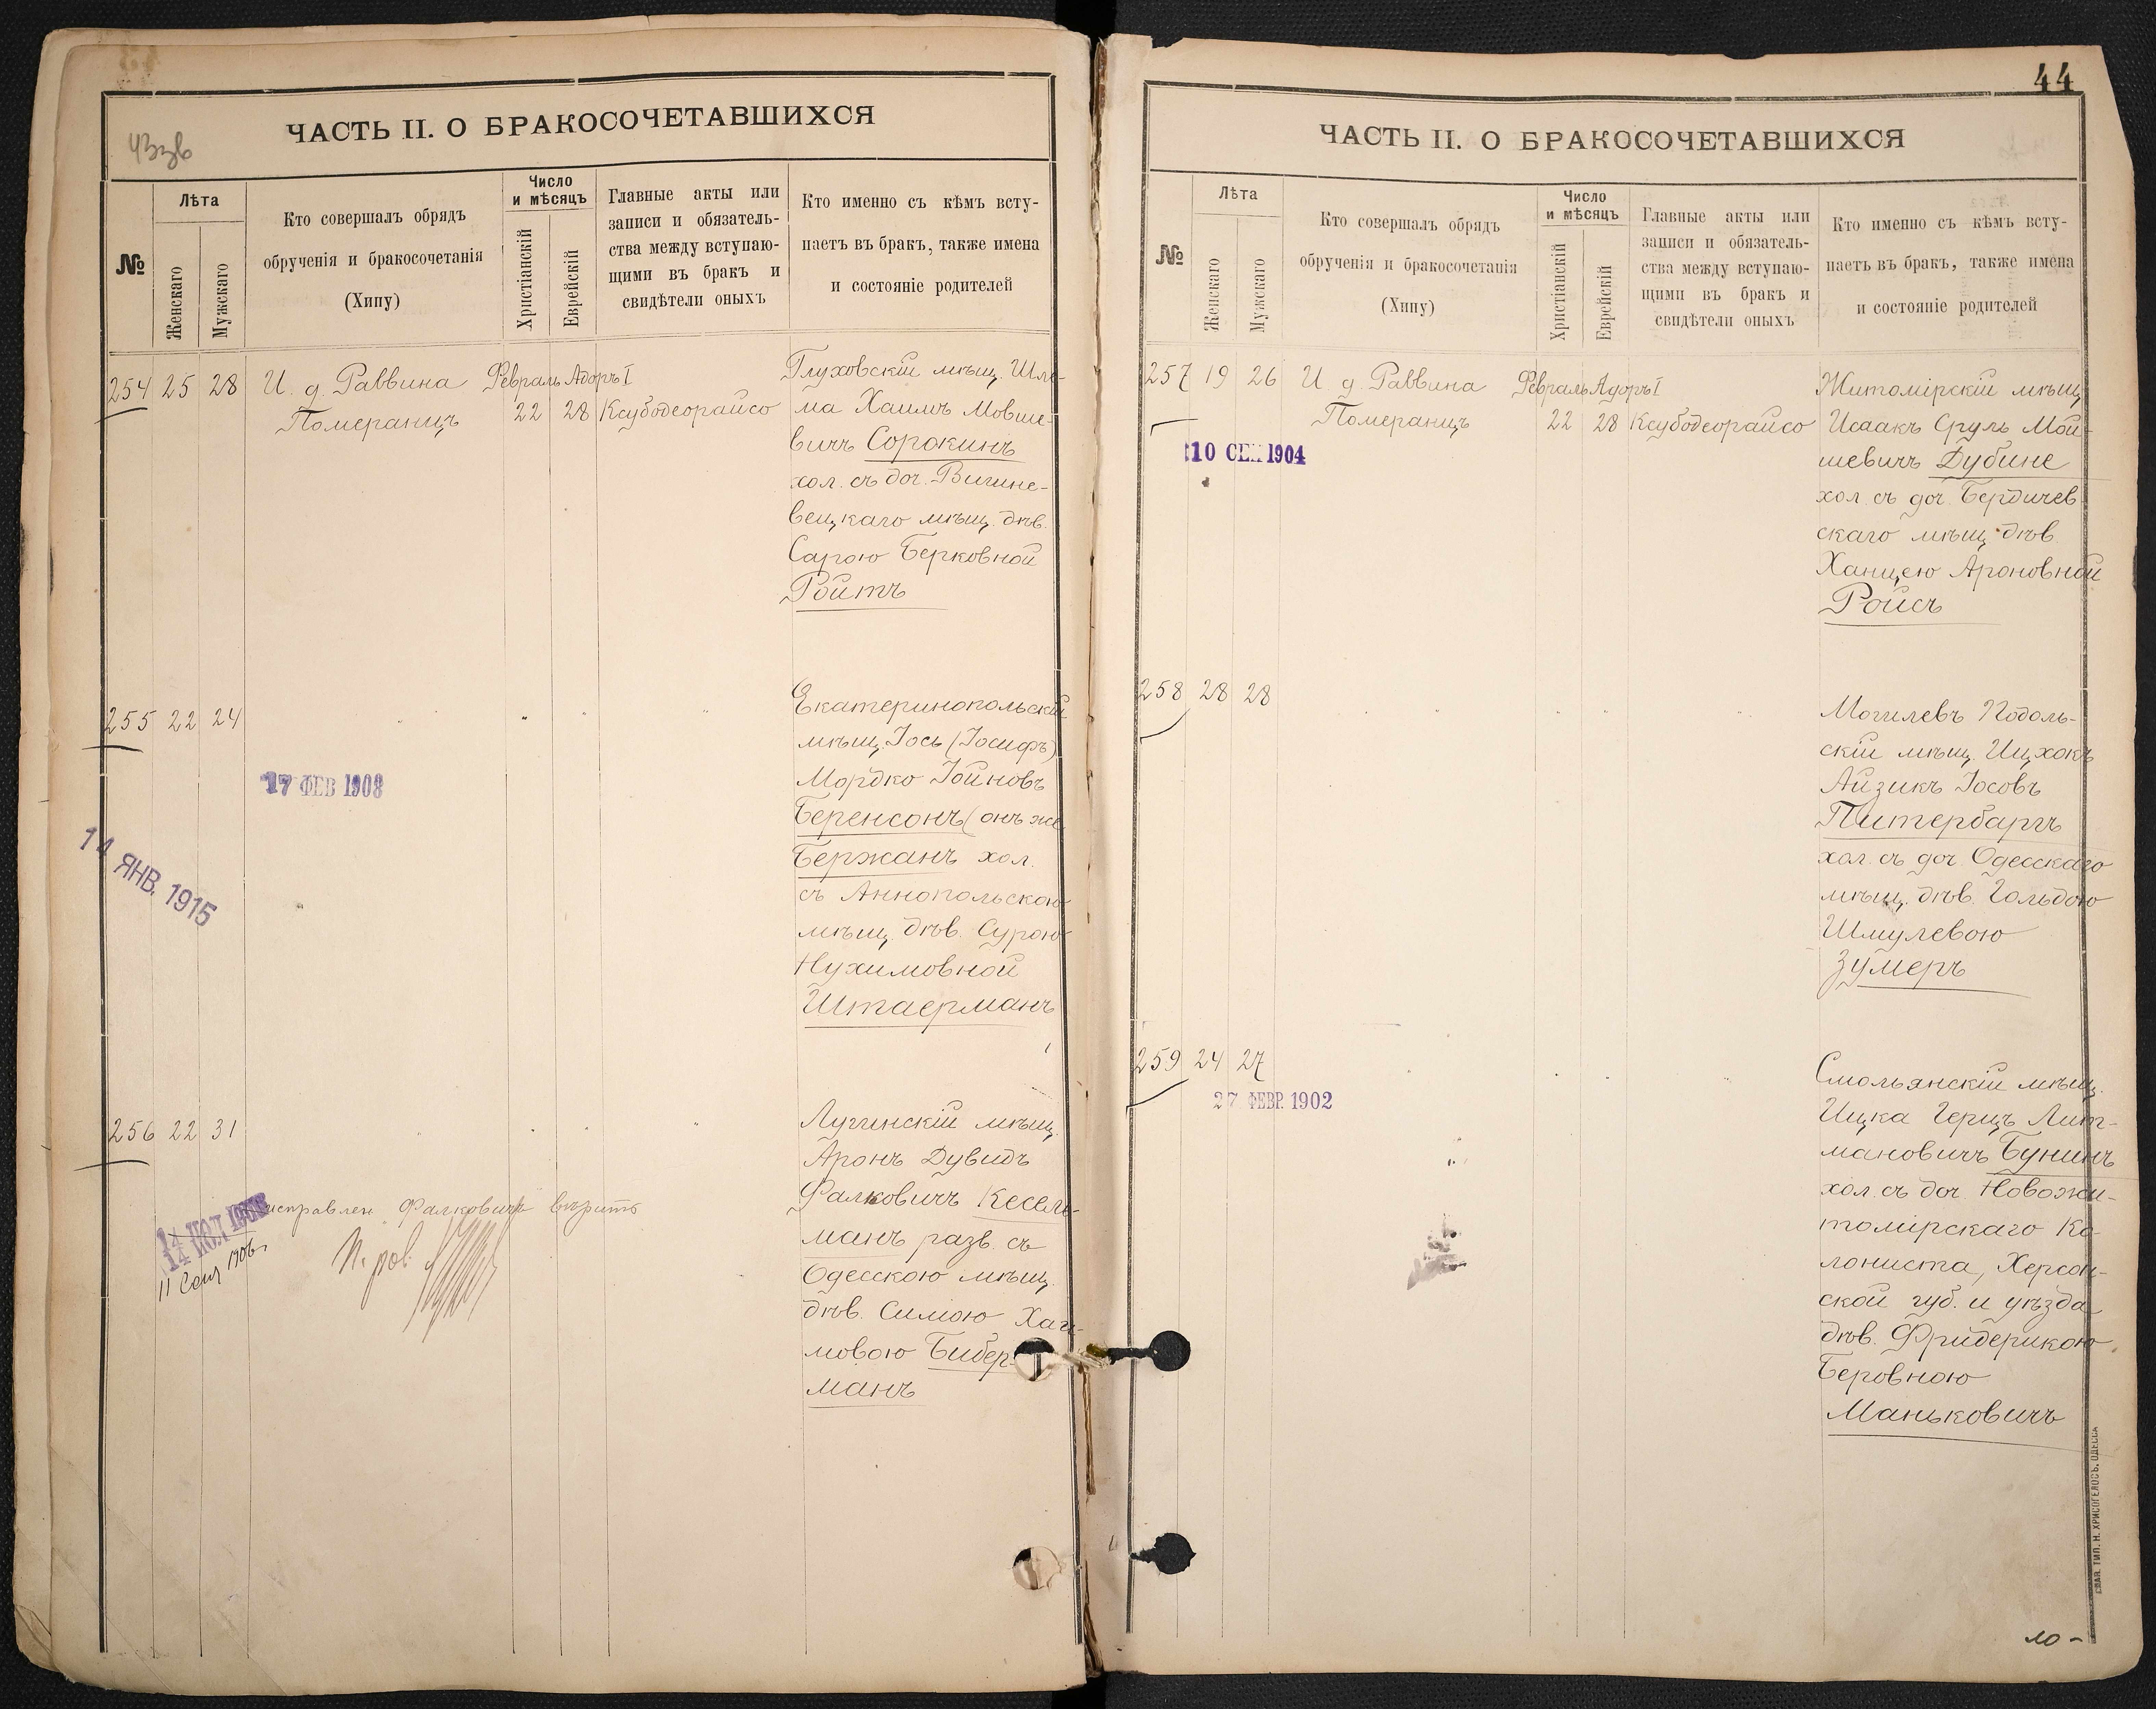 43 зв
ЧАСТЬ II. О БРАКОСОЧЕТАВШИХСЯ
№
Лѣта
Женскаго
Мужскаго
Кто совершалъ обрядъ
обрученія и бракосочетанія
(Хипу)
Число
и мѣсяцъ
Христіанскій
Еврейскій
Главные акты или
записи и обязатель-
ства между вступаю-
щими въ бракъ и
свидѣтели оныхъ
Кто именно съ кѣмъ всту-
паетъ въ бракъ, также имена
и состояніе родителей
254 25 28 И. д. Раввина Февраль Адоръ I
Померанцъ 22 28 Ксубодеорайсо
Глуховскій мѣщ. Шло-
ма Хаимъ Мовше-
вичъ Сорокинъ
хол. съ доч. Вишне-
вецкаго мѣщ. дѣв.
Сарою Берковной
Ройтъ
255 22 24 " " " "
17 ФЕВ 1908
14 ЯНВ. 1915
Екатеринопольскій
мѣщ. Іось (Іосифъ)
Мордко Іойновъ
Беренсонъ (онъ же
Бержанъ хол.
съ Аннопольскою
мѣщ. дѣв. Сурою
Нухимовной
Штаерманъ
256 22 31 " " " "
исправлен. Фалковичъ вѣрить
14 ІЮЛ
11 Сен 1906 г.
Лугинскій мѣщ.
Аронъ Дувидъ
Фалковичъ Кесель-
манъ разв. съ
Одесскою мѣщ.
дѣв. Симою Хаи-
мовою Бибер-
манъ
44
ЧАСТЬ II. О БРАКОСОЧЕТАВШИХСЯ
№
Лѣта
Женскаго
Мужскаго
Кто совершалъ обрядъ
обрученія и бракосочетанія
(Хипу)
Число
и мѣсяцъ
Христіанскій
Еврейскій
Главные акты или
записи и обязатель-
ства между вступаю-
щими въ бракъ и
свидѣтели оныхъ
Кто именно съ кѣмъ всту-
паетъ въ бракъ, также имена
и состояніе родителей
257 19 26 И. д. Раввина Февраль Адоръ I
Померанцъ 22 28 Ксубодеорайсо
10 СЕН 1904
Житомірскій мѣщ.
Исаакъ Сруль Мой-
шевичъ Дубине
хол. съ доч. Бердичев-
скаго мѣщ. дѣв.
Ханцею Ароновной
Ройсъ
258 28 28 " " " "
Могилевъ Подоль-
скій мѣщ. Ицхокъ
Айзикъ Іосовъ
Питербаргъ
хол. съ доч. Одесскаго
мѣщ. дѣв. Гольдою
Шмулевою
Зумеръ
259 24 27 " " " "
27 ФЕВР. 1902
Смольянскій мѣщ.
Ицка Герцъ Лит-
мановичъ Бунинъ
хол. съ доч. Новожи-
томірскаго Ко-
лониста, Херсон-
ской губ. и уѣзда
дѣв. Фридерикою
Беровною
Маньковичъ
СЛАВ. ТИП. Н. ХРИСОГЕЛОСЪ. ОДЕССА